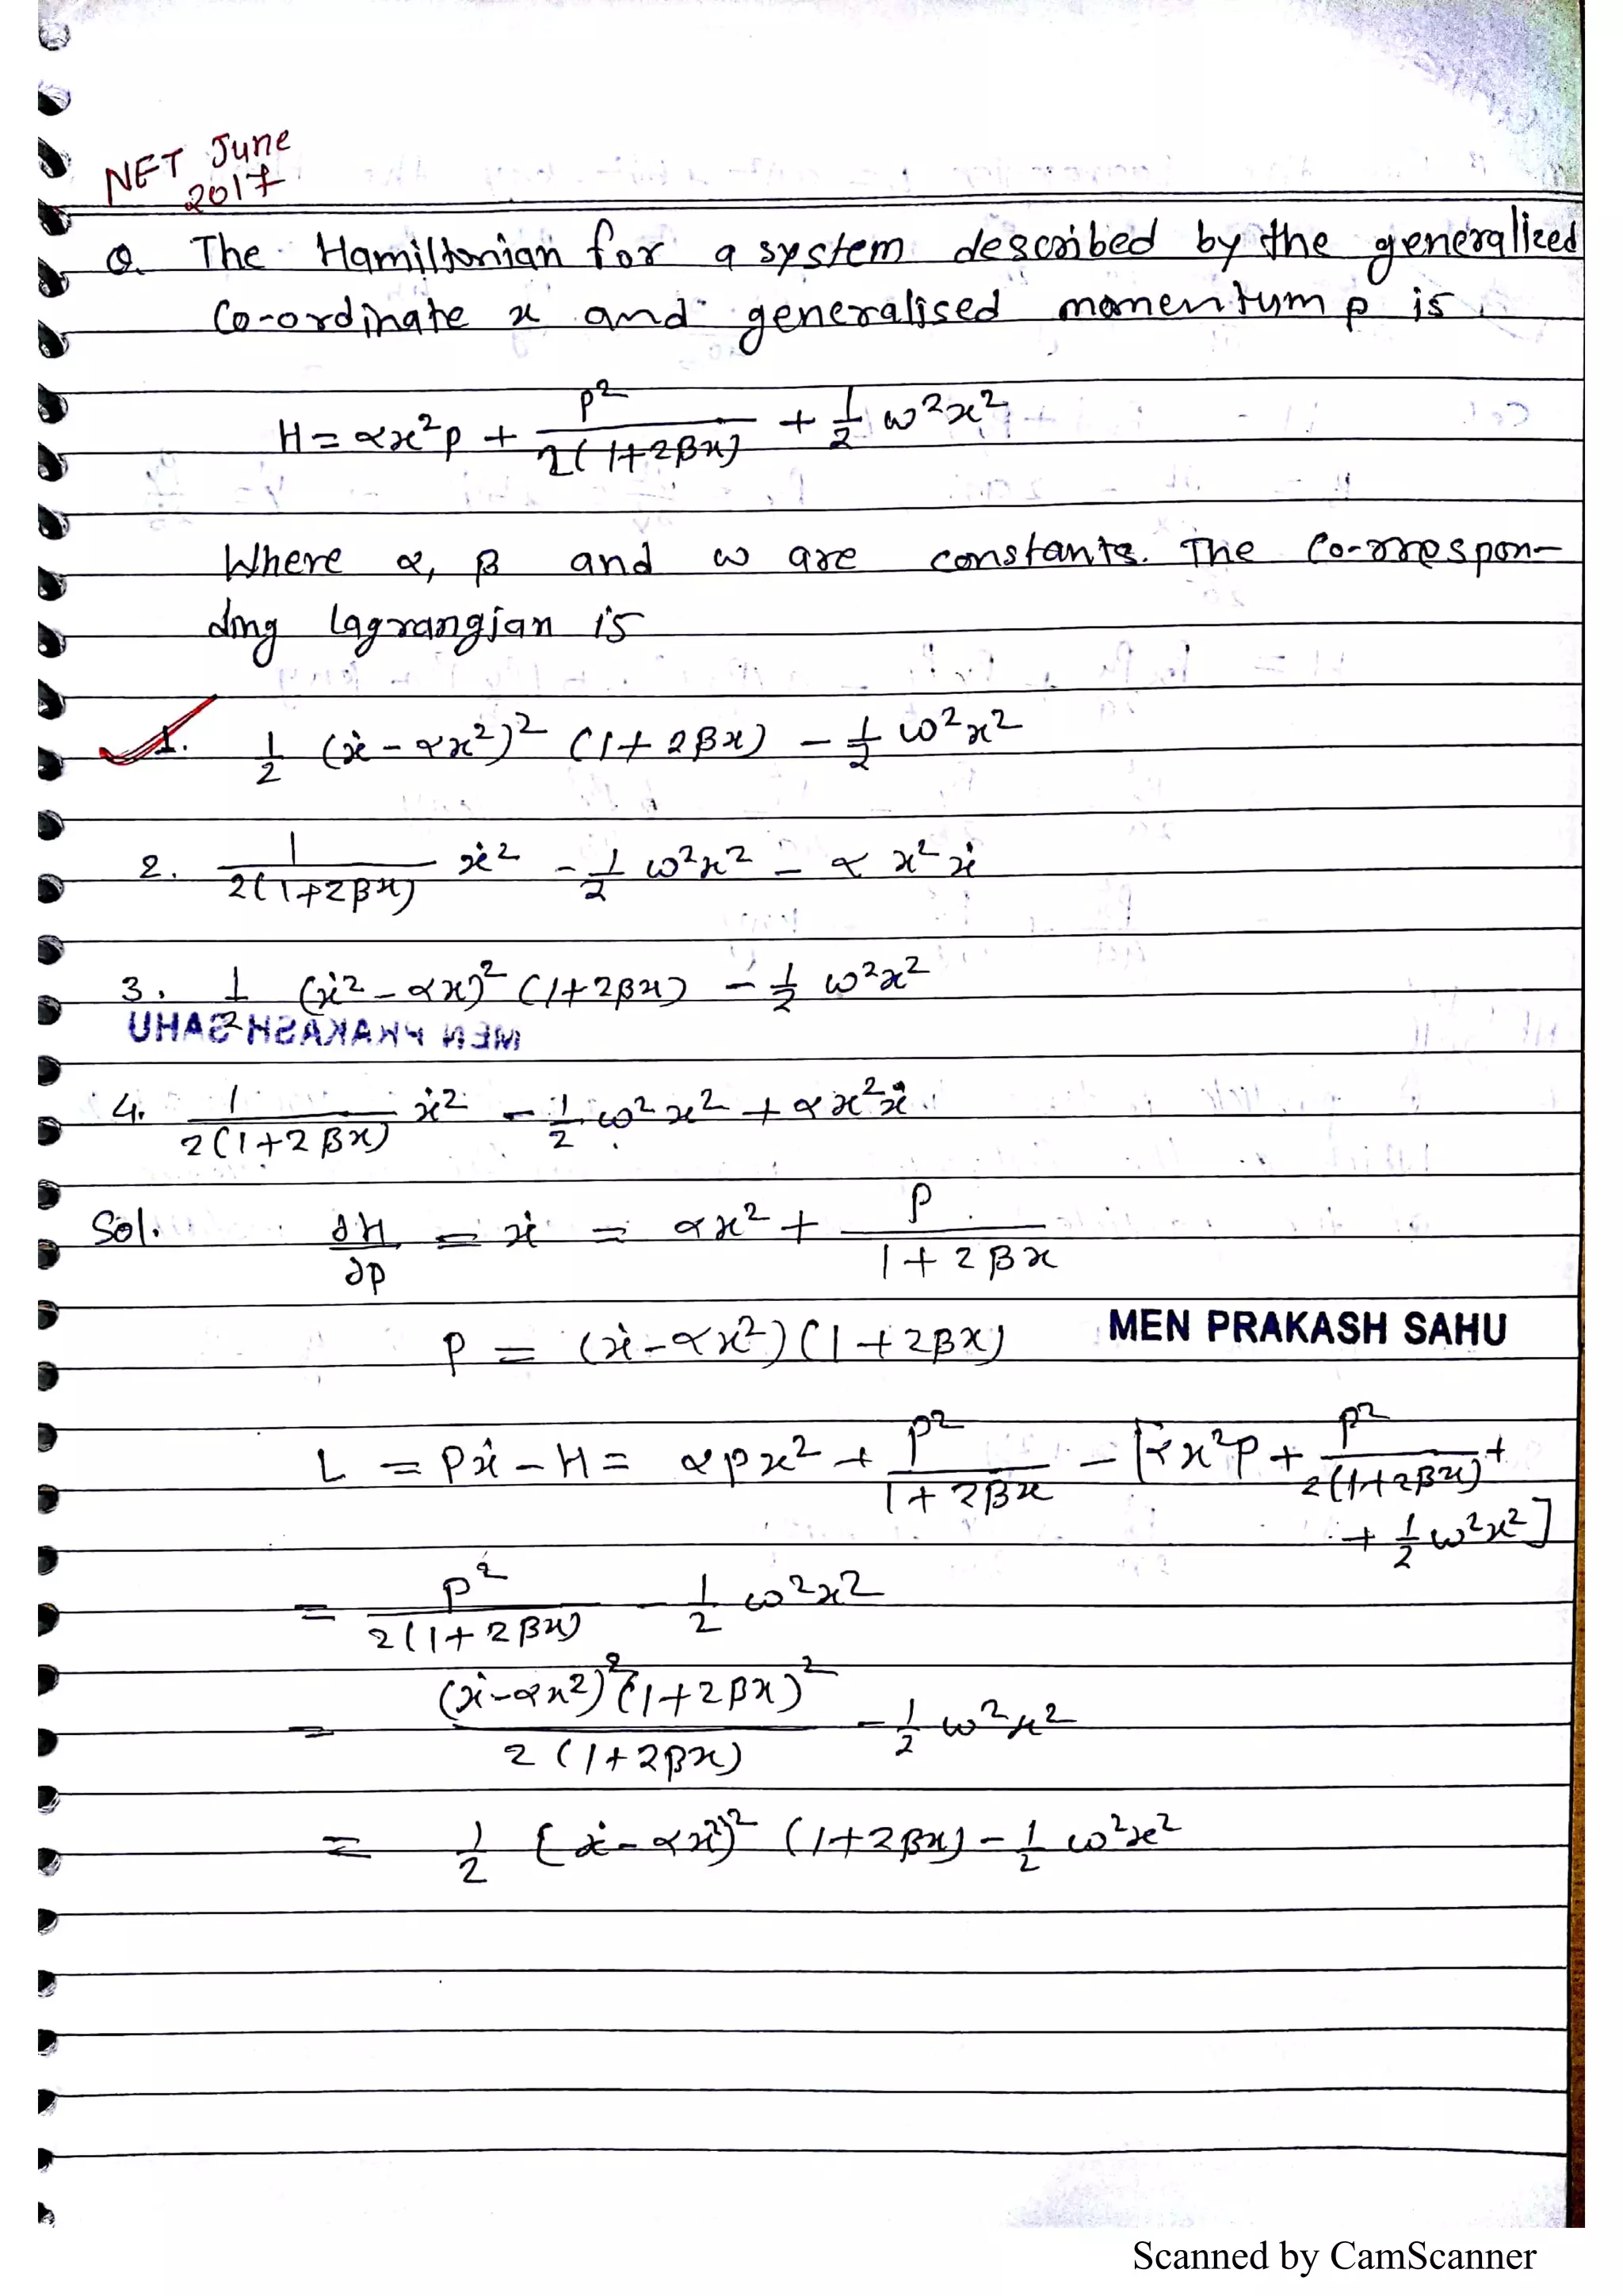 NET June
2017
Q. The Hamiltonian for a system described by the generalized
Co-ordinate x and generalised momentum p is
H = αx²p + p²/2(1+2βx) + 1/2 ω²x²
Where α, β and ω are constants. The Co-rrespon-
ding lagrangian is
1. 1/2 (ẋ - αx²)² (1+2βx) - 1/2 ω²x²
2. 1/2(1+2βx) ẋ² - 1/2 ω²x² - α x²ẋ
3. 1/2 (ẋ² - αx)² (1+2βx) - 1/2 ω²x²
MEN PRAKASH SAHU
4. 1/2(1+2βx) ẋ² - 1/2 ω²x² + αx²ẋ
Sol. ∂H/∂p = ẋ = αx² + p/1+2βx
P = (ẋ-αx²)(1+2βx)
MEN PRAKASH SAHU
L = Pẋ - H = αpx² + p²/1+2βx - [αx²p + p²/2(1+2βx) +
+ 1/2 ω²x²]
= p²/2(1+2βx) - 1/2 ω²x²
= (ẋ-αx²)²(1+2βx)²/2(1+2βx) - 1/2 ω²x²
= 1/2 (ẋ-αx²)² (1+2βx) - 1/2 ω²x²
Scanned by CamScanner